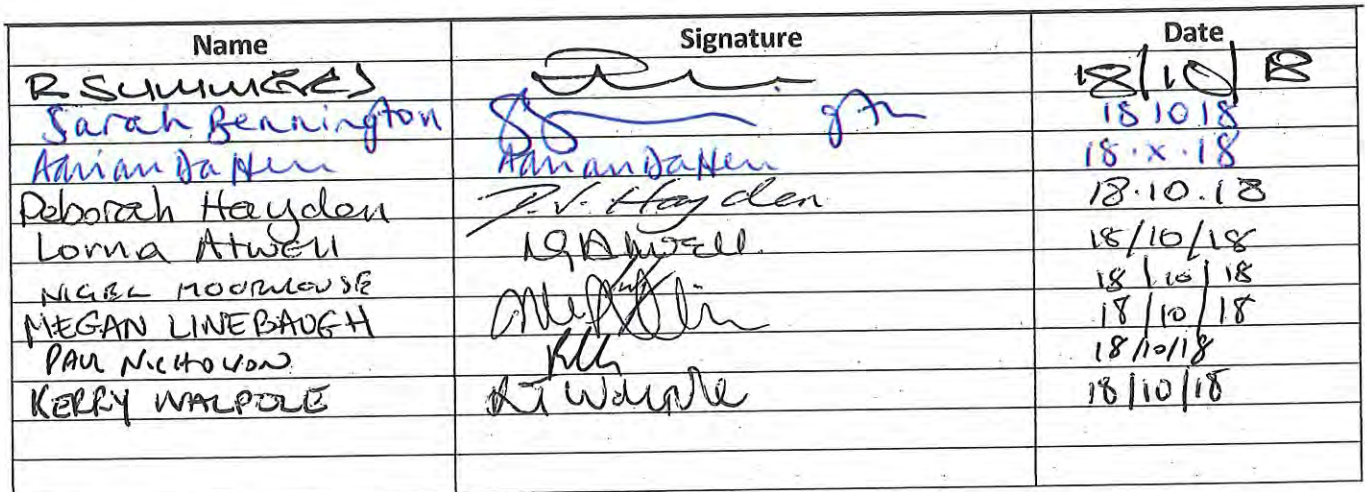 Name Signature Date
R SUMMERS 18/10/18
Sarah Bennington 18 10 18
Adrian 18.X.18
Deborah Hayden D.V. Hayden 18.10.18
Lorna Atwell LG Atwell 18/10/18
NIGEL MOORHOUSE 18/10/18
MEGAN LINEBAUGH 18/10/18
PAUL 18/10/18
KERRY WALPOLE KJ Walpole 18/10/18